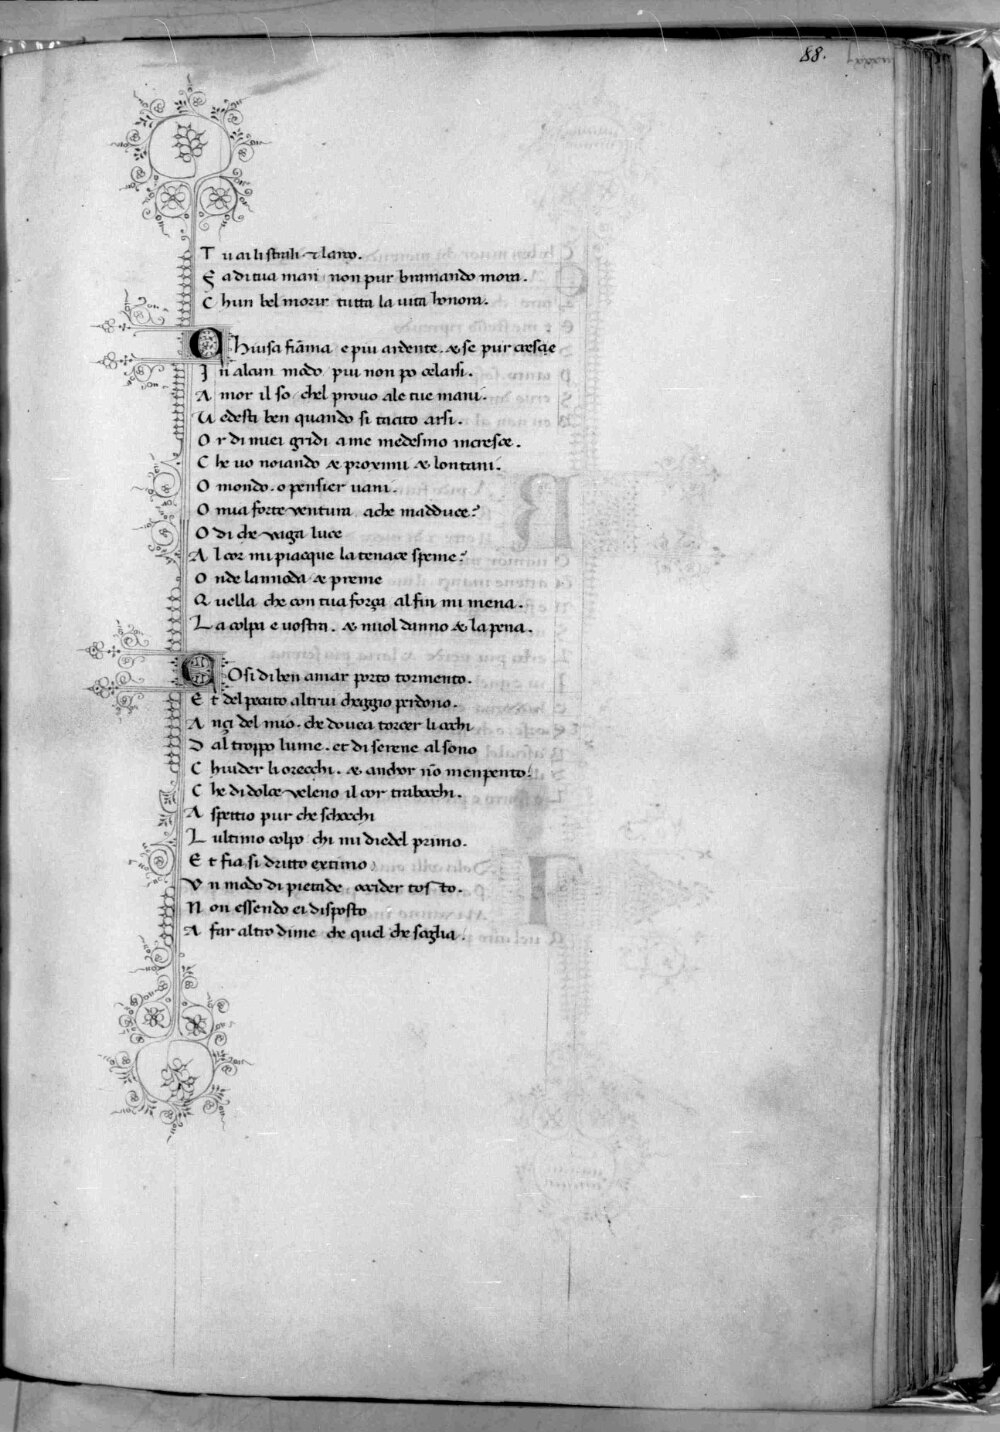 88.
Tu ai li strali. & larco.
Fa di tua man non pur bramando mora.
Chun bel morir tutta la uita honora.
Chiusa fiāma e piu ardente. & se pur cresce
In alcun modo piu non po celarsi.
Amor il so chel prouo ale tue mani.
Uedesti ben quando si tacito arsi.
Or di miei gridi a me medesmo incresce.
Che uo noiando & proximi & lontani.
O mondo. o pensier uani.
O mia forte ventura a che madduce?
O di che vaga luce
Al cor mi piacque la tenace speme?
Onde lannoda & preme
Quella che con tua força al fin mi mena.
La colpa e uostra. & miol danno & la pena.
Cosi di ben amar porto tormento.
Et del peccato altrui cheggio perdono.
Ançi del mio. che douea torcer li occhi
Dal troppo lume. et di serene al sono
Chiuder li orecchi. & anchor nō men pento.
Che di dolce veleno il cor trabocchi.
Aspetto pur che schocchi
Lultimo colpo chi mi diedel primo.
Et fia si dritto extimo
Vn modo di pietade occider tosto.
Non essendo ei disposto
A far altro di me che quel che soglia.